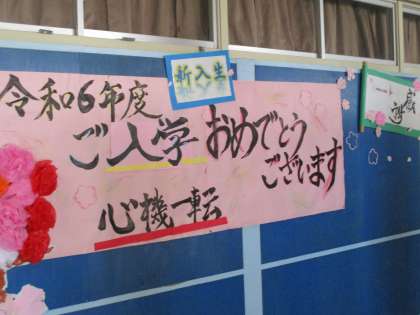 新入生
令和6年度
ご入学おめでとう
ございます
心機一転